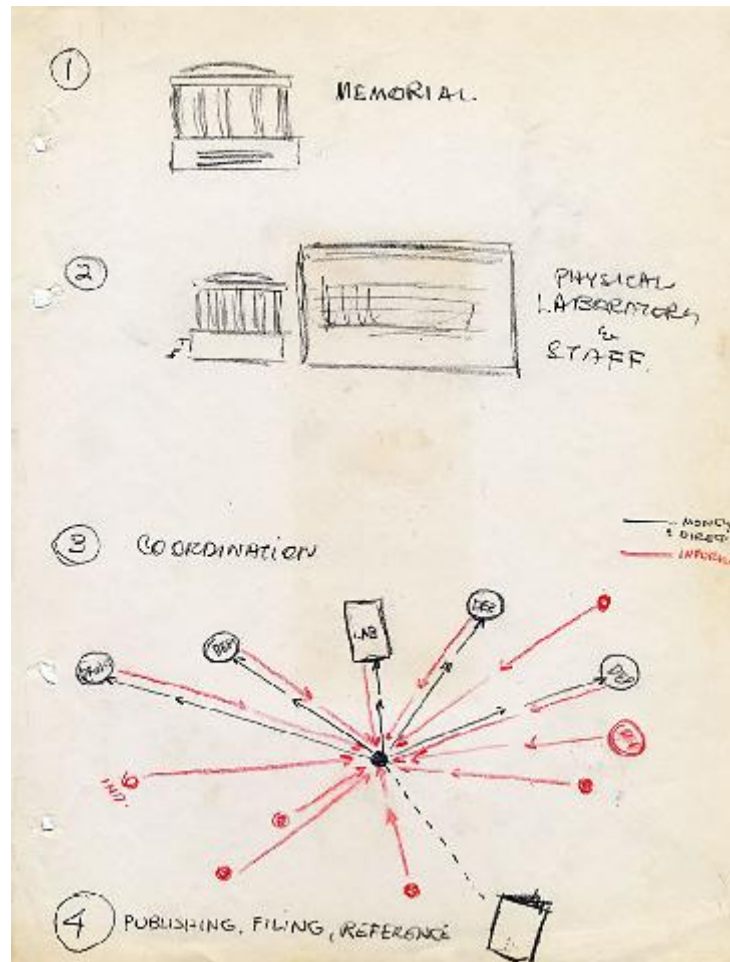 1
MEMORIAL.
2
PHYSICAL
LABORATORY
&
STAFF.
3 COORDINATION
MONEY
& DIRECT
INFORMA
DEP
LAB
DEP
DEP
IND.
4 PUBLISHING, FILING, REFERENCE